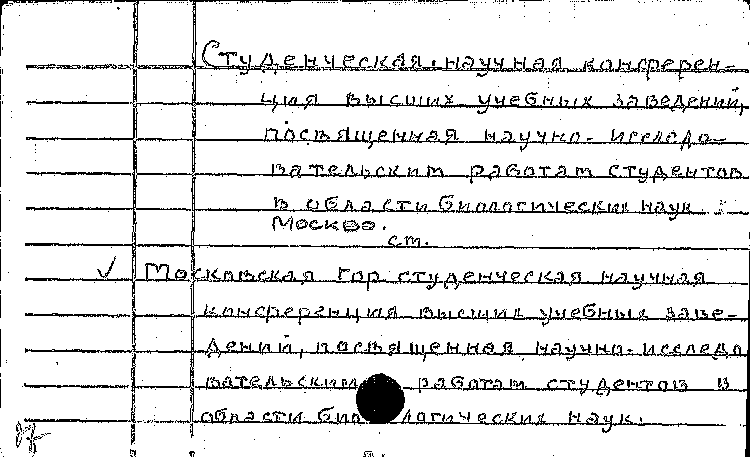 Студенческая научная конферен-
ция высших учебных заведений,
посвященная научно-исследо-
вательским работам студентов
в области биологических наук.
Москва.
см.
✓ Московская гор студенческая научная
конференция высших учебных заве-
дений, посвященная научно-исследо
вательским работам студентов в
области биологических наук.